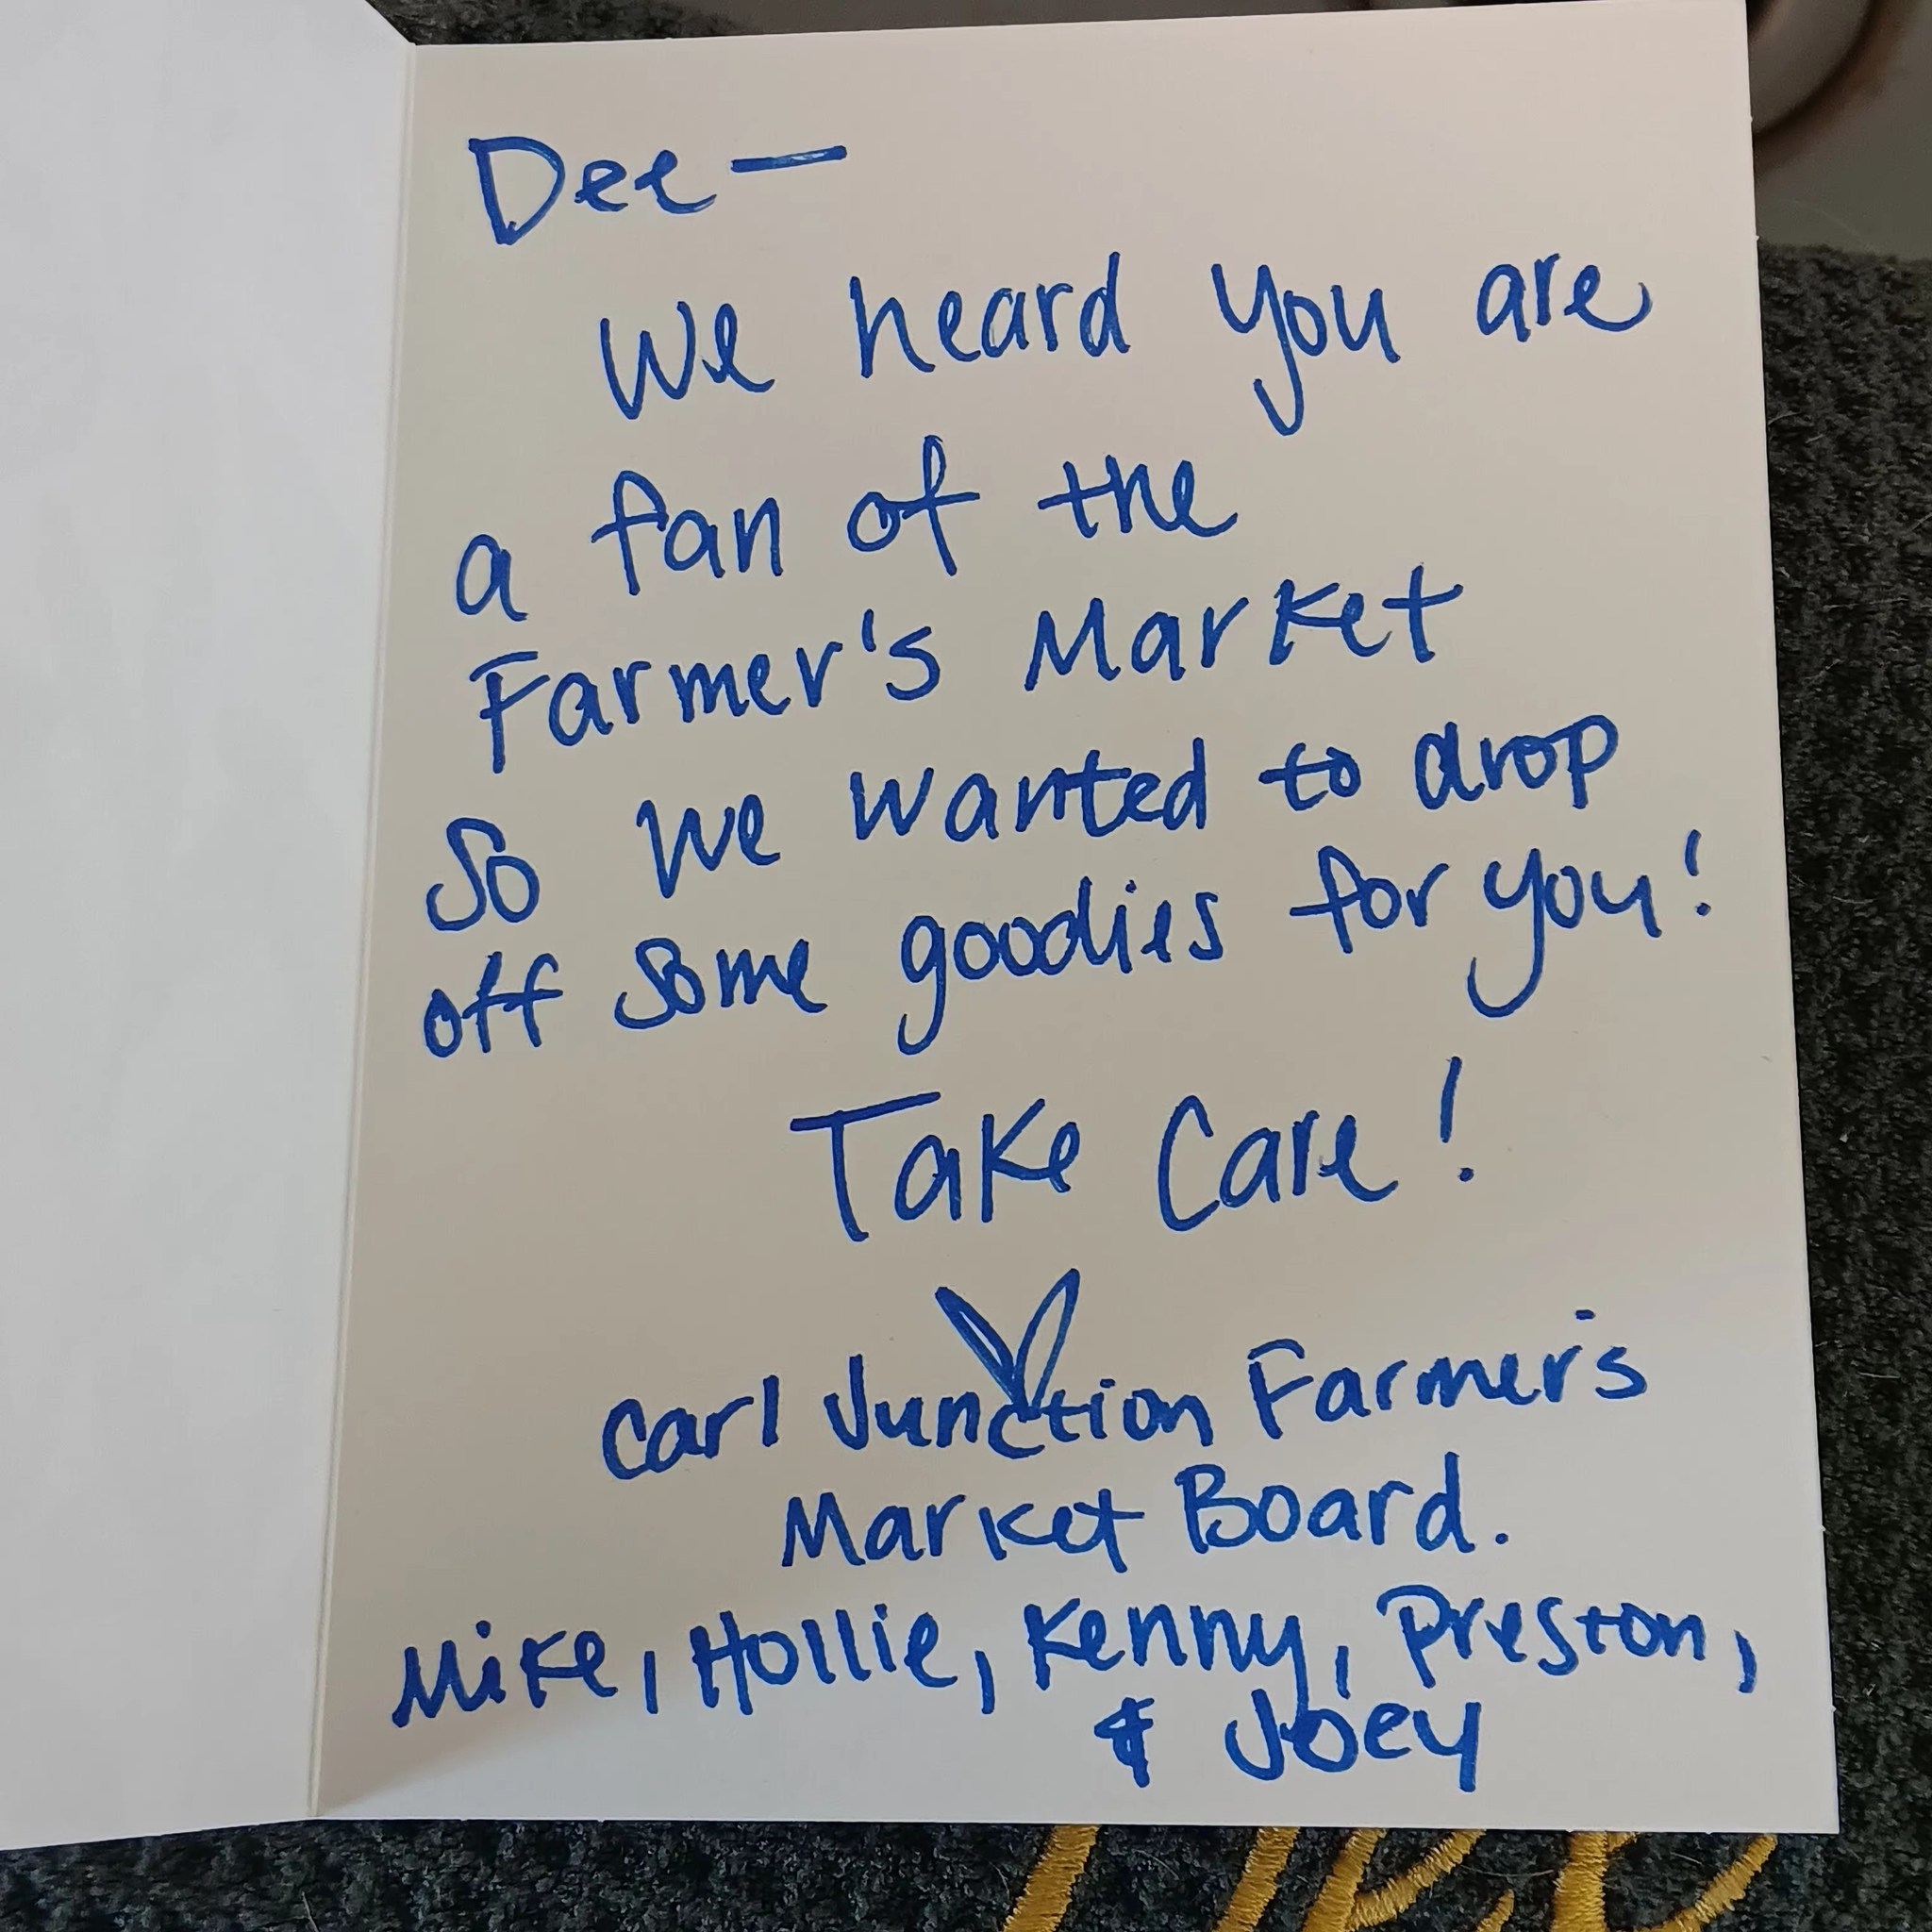 Dee —
We heard you are
a fan of the
Farmer's Market
So we wanted to drop
off some goodies for you!
Take Care!
Carl Junction Farmer's
Market Board.
Mike, Hollie, Kenny, Preston,
& Joey